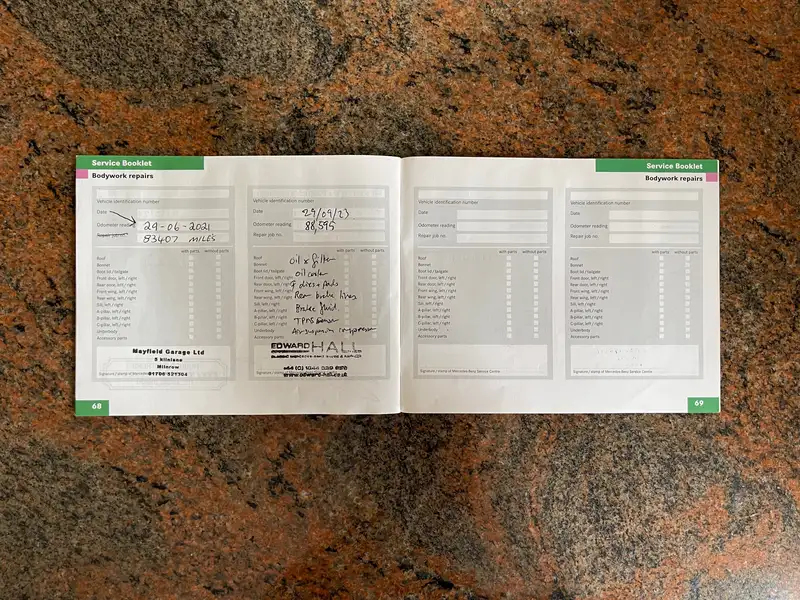 Service Booklet
Bodywork repairs
Vehicle identification number
Date
Odometer reading 29-06-2021
Repair job no. 83407 MILES
with parts without parts
Roof
Bonnet
Boot lid / tailgate
Front door, left / right
Rear door, left / right
Front wing, left / right
Rear wing, left / right
Sill, left / right
A-pillar, left / right
B-pillar, left / right
C-pillar, left / right
Underbody
Accessory parts
Mayfield Garage Ltd
Milnrow
68
Vehicle identification number
Date 29/09/23
Odometer reading 88,595
Repair job no.
with parts without parts
Roof
Bonnet
Boot lid / tailgate
Front door, left / right
Rear door, left / right
Front wing, left / right
Rear wing, left / right
Sill, left / right
A-pillar, left / right
B-pillar, left / right
C-pillar, left / right
Underbody
Accessory parts
Oil x filter
Oil cooler
discs + Pads
Rear brake lines
Brake fluid.
TPMS sensor
Air suspension compressor
EDWARD HALL
www.edward-hall.co.uk
Service Booklet
Bodywork repairs
Vehicle identification number
Date
Odometer reading
Repair job no.
with parts without parts
Roof
Bonnet
Boot lid / tailgate
Front door, left / right
Rear door, left / right
Front wing, left / right
Rear wing, left / right
Sill, left / right
A-pillar, left / right
B-pillar, left / right
C-pillar, left / right
Underbody
Accessory parts
Signature / stamp of Mercedes-Benz Service Centre
Vehicle identification number
Date
Odometer reading
Repair job no.
with parts without parts
Roof
Bonnet
Boot lid / tailgate
Front door, left / right
Rear door, left / right
Front wing, left / right
Rear wing, left / right
Sill, left / right
A-pillar, left / right
B-pillar, left / right
C-pillar, left / right
Underbody
Accessory parts
Signature / stamp of Mercedes-Benz Service Centre
69